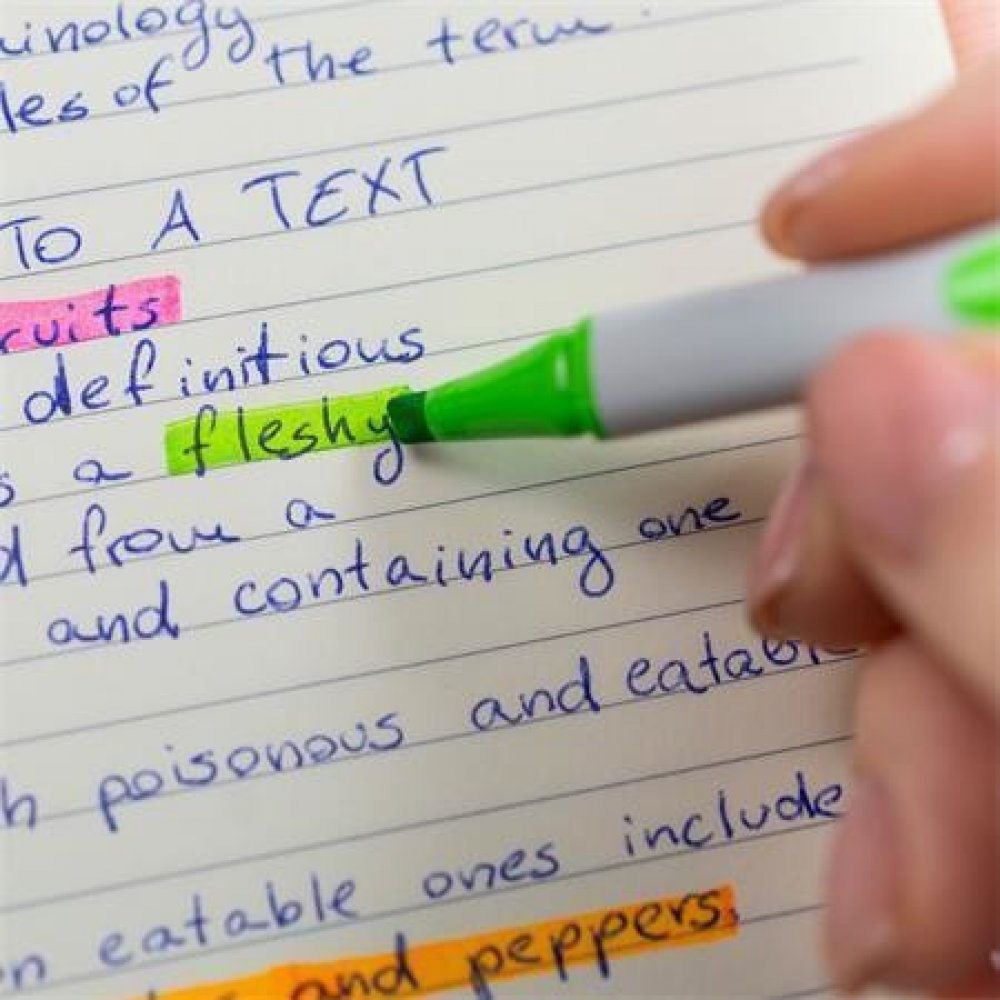 inology
les of the term
TO A TEXT
ruits
definitions
s a fleshy
d from a
and containing one
h poisonous and eatab
n eatable ones include
and peppers.